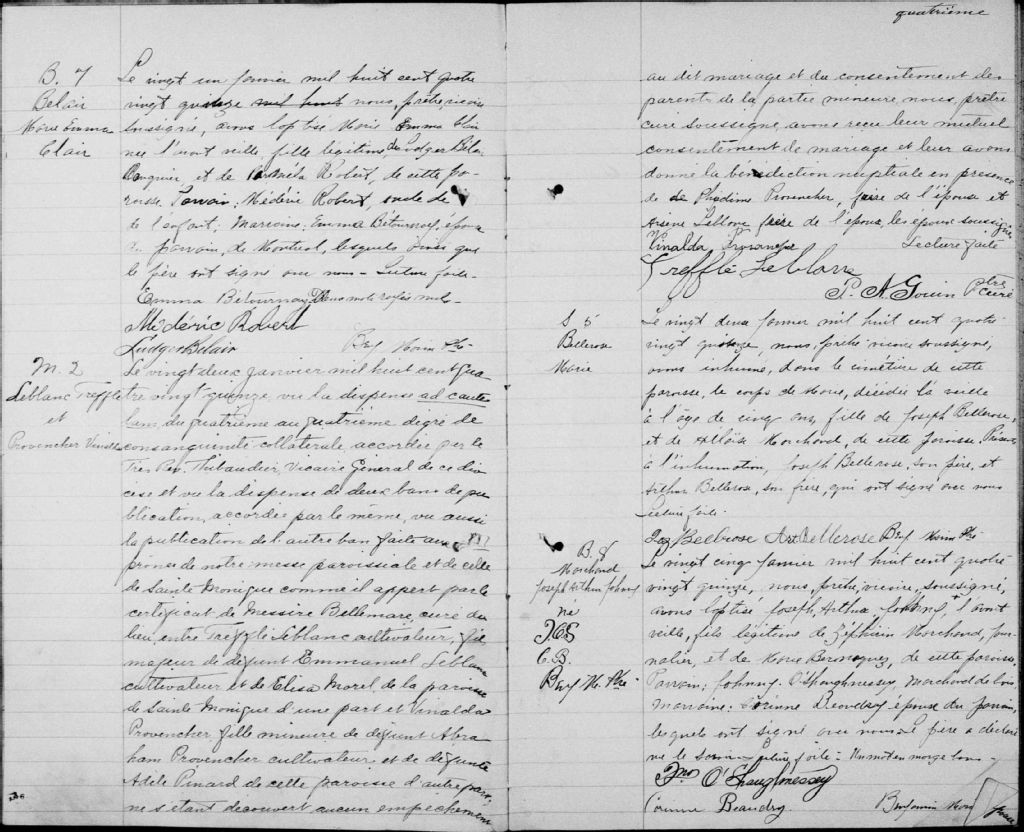 B. 7
Belair
Marie Emma
Clair
Le vingt un janvier mil huit cent quatre
vingt quinze mil huit nous, prêtre vicaire
soussigné, avons baptisé Marie Emma Clair
née l'avant veille, fille légitime de Ludger Bélair
et de Robert, de cette pa-
roisse. Parrain: Médéric Robert, oncle de
de l'enfant; Marraine: Emma Bétournay, épouse
du parrain, de Montréal, lesquels ainsi que
le père ont signé avec nous - Lecture faite.
Emma Bétournay Deux mots rayés nuls -
Médéric Robert
Ludger Belair Benj. Ptre
M. 2
Leblanc Trefflé
et
Provencher Vinalda
Le vingt deux janvier mil huit cent qua
tre vingt quinze, vu la dispense ad caute
lam, du quatrième au quatrième degré de
consanguinité collatérale, accordée par le
Très Rev. Thibaudier, Vicaire Général de ce dio
cèse et vu la dispense de deux bans de pu
blication, accordée par le même, vu aussi
la publication de l'autre ban faite aux
prônes de notre messe paroissiale et de celle
de Sainte Monique comme il appert par le
certificat de Messire Bellemare, curé du
lieu, entre Trefflé Leblanc cultivateur, fils
majeur de défunt Emmanuel Leblanc
cultivateur et de Elisa Morel, de la paroisse
de Sainte Monique d'une part et Vinalda
Provencher fille mineure de défunt Abra
ham Provencher cultivateur, et de défunte
Adèle Pinard de cette paroisse d'autre part,
ne s'étant découvert aucun empêchement
quatrième
au dit mariage et du consentement des
parents de la partie mineure, nous, prêtre
curé soussigné, avons reçu leur mutuel
consentement de mariage et leur avons
donné la bénédiction nuptiale en présence
de Phidime Provencher, frère de l'épouse et
Arsène Leblanc frère de l'époux, les époux soussignés
Vinalda Provencher Lecture faite
Trefflé Leblanc
P. A. Gouin Ptre Curé
S 5
Bellerose
Marie
Le vingt deux janvier mil huit cent quatre
vingt quinze, nous, prêtre vicaire soussigné,
avons inhumé, dans le cimetière de cette
paroisse, le corps de Marie, décédée la veille
à l'âge de cinq ans, fille de Joseph Bellerose,
et de Marchand, de cette paroisse. Présents
à l'inhumation, Joseph Bellerose, son père, et
Arthur Bellerose, son frère, qui ont signé avec nous
Lecture faite.
Jos Bellrose Art Bellerose Benj. Ptre
B. 8
Marchand
Joseph Arthur Johnny
ne
C. B.
Benj Ptre
Le vingt cinq janvier mil huit cent quatre
vingt quinze, nous, prêtre, vicaire, soussigné,
avons baptisé Joseph, Arthur Johnny, né l'avant
veille, fils légitime de Zéphirin Marchand, jour-
nalier, et de Marie, de cette paroisse.
Parrain: Johnny O'Shaughnessy, marchand de bois
Marraine: Corinne Beaudry épouse du parrain,
lesquels ont signé avec nous. Le père a déclaré
ne le savoir Lecture faite - Un mot en marge bon -
Jno O'Shaughnessey
Corinne Beaudry Benjamin